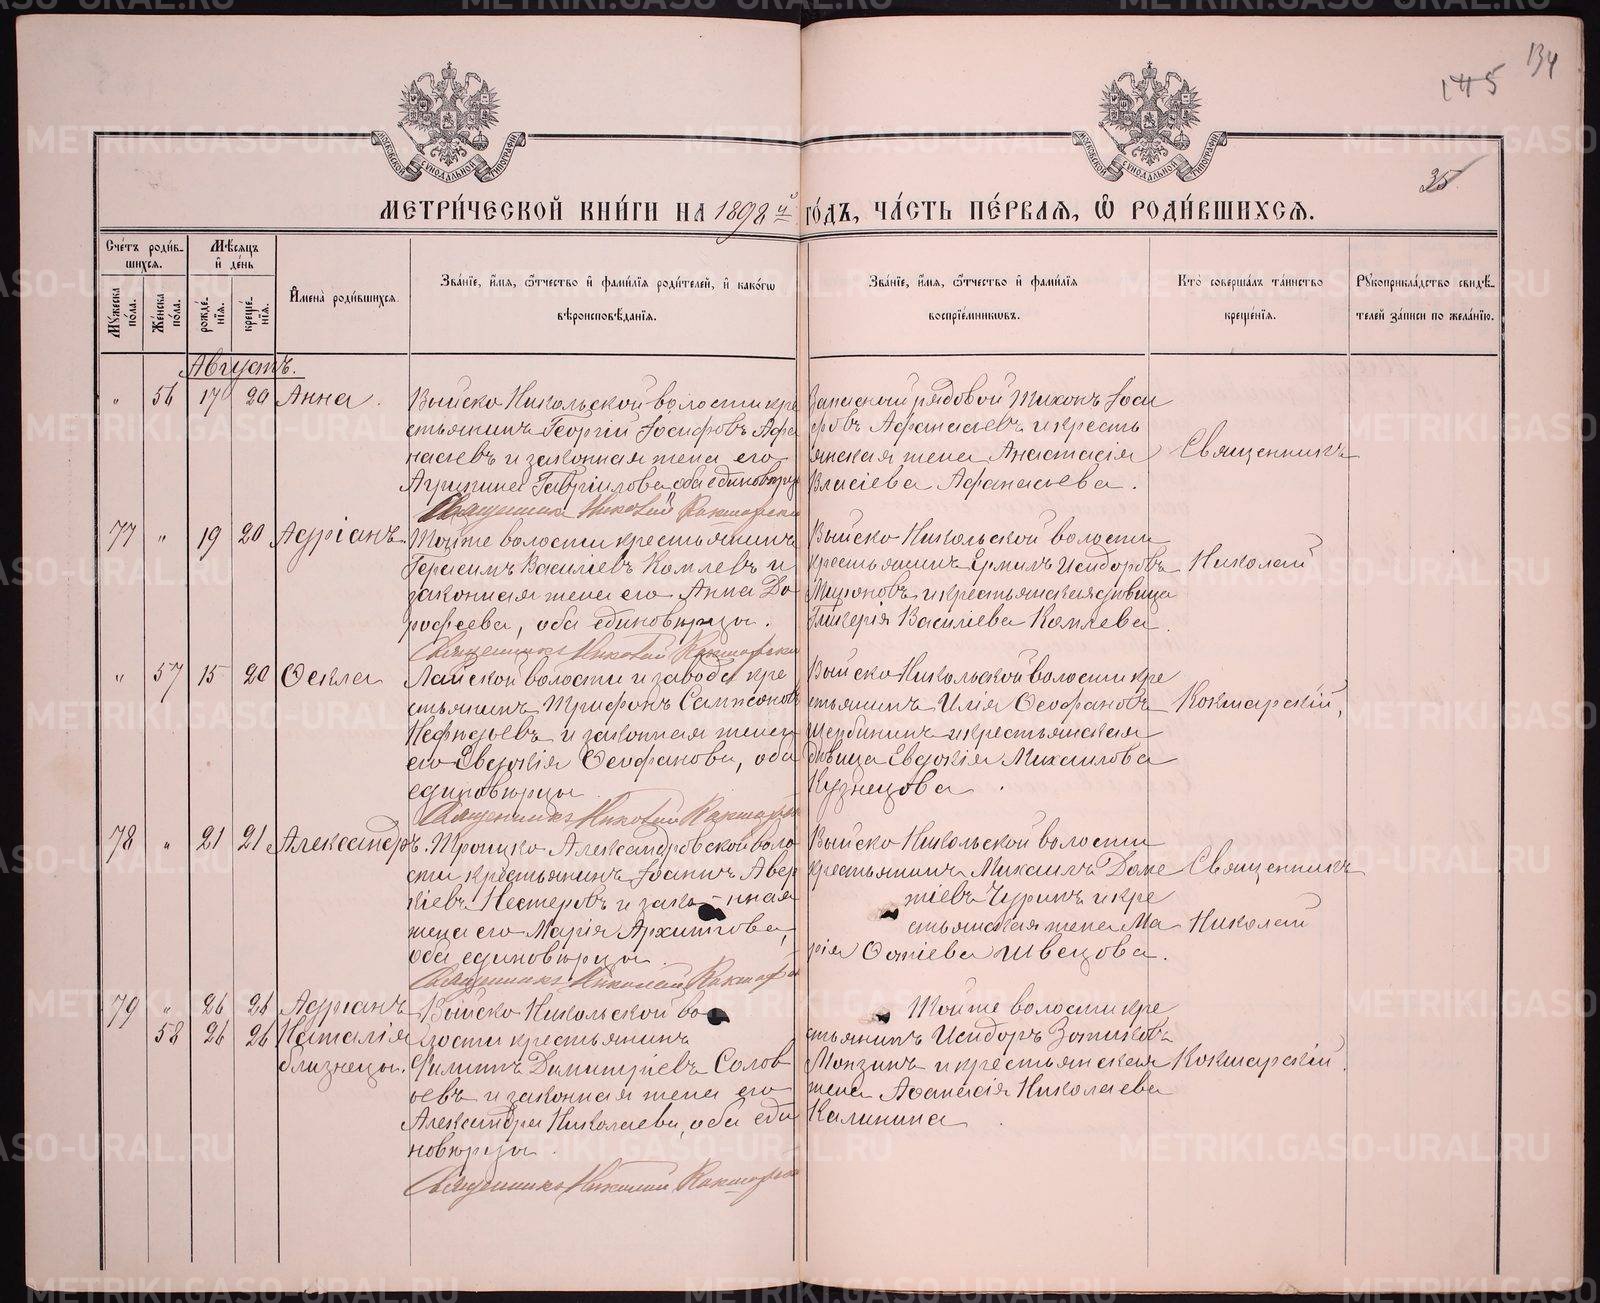 134
145
35
МОСКОВСКОЙ СѴНОДАЛЬНОЙ ТИПОГРАФІИ
МОСКОВСКОЙ СѴНОДАЛЬНОЙ ТИПОГРАФІИ
МЕТРИ́ЧЕСКОЙ КНИ́ГИ НА 1898й ГО́ДЪ, ЧА́СТЬ ПЕ́РВАЯ, Ѽ РОДИ́ВШИХСЯ.
Сче́тъ роди́в-
шихся.
Мꙋ́жеска по́ла.
Же́нска по́ла.
Мѣ́сяцъ
и҆ де́нь
рожде́-
нїя.
креще́-
нїя.
И҆мена̀ роди́вшихся.
Зва́нїе, и҆́мя, ѻ҆́тчество и҆ фами́лїя роди́телей, и҆ како́гѡ
вѣроисповѣ́данїя.
Зва́нїе, и҆́мя, ѻ҆́тчество и҆ фами́лїя
воспрїе́мникѡвъ.
Кто̀ соверша́лъ та́инство
креще́нїя.
Рꙋкоприкла́дство свидѣ́-
телей за́писи по жела́нїю.
Августъ.
„ 56 17 20 Анна.
Выйско Никольской волости кре
стьянинъ Георгій Іосифовъ Афа
насьевъ и законная жена его
Агрипина Гавріилова оба единоверцы
Священникъ Николай Кокшарскій
Запасной рядовой Тихонъ Іоси
фовъ Афанасьевъ и кресть
янская жена Анастасія
Власіева Афанасьева.
Священникъ
77 „ 19 20 Адріанъ
Тойже волости крестьянинъ
Герасимъ Василіевъ Комлевъ и
законная жена его Анна До
рофеева, оба единоверцы.
Священникъ Николай Кокшарскій
Выйско Никольской волости
крестьянинъ Ермилъ Исидоровъ
и крестьянская вдовица
Гликерія Василіева Комлева.
Николай
„ 57 15 20 Ѳекла
Лайской волости и завода кре
стьянинъ Трифонъ Сампсоновъ
Нефедьевъ и законная жена
его Евдокія Ѳеофанова, оба
единоверцы
Священникъ Николай Кокшарскій
Выйско Никольской волости кре
стьянинъ Илія Ѳеофановъ
Щербининъ и крестьянская
вдовица Евдокія Михаилова
Кузнецова.
Кокшарскій,
78 „ 21 21 Александръ.
Троицко Александровской воло
сти крестьянинъ Іоаннъ Авер
кіевъ Нестеровъ и законная
жена его Марія Архиппова,
оба единоверцы.
Священникъ Николай Кокшарскій
Выйско Никольской волости
крестьянинъ Михаилъ Доме
тіевъ Чуринъ и кре
стьянская жена Ма
рія Фотіева Швецова.
Священникъ
Николай
79 „ 26 26 Адріанъ
58 26 26 Наталія
близнецы.
Выйско Никольской во
лости крестьянинъ
Филиппъ Димитріевъ Солов
ьевъ и законная жена его
Александра Николаева, оба еди
новерцы.
Священникъ Николай Кокшарскій
Тойже волости кре
стьянинъ Исидоръ Зотиковъ
Монзинъ и крестьянская
жена Аѳанасія Николаева
Калинина.
Кокшарскій.
METRIKI.GASO-URAL.RU